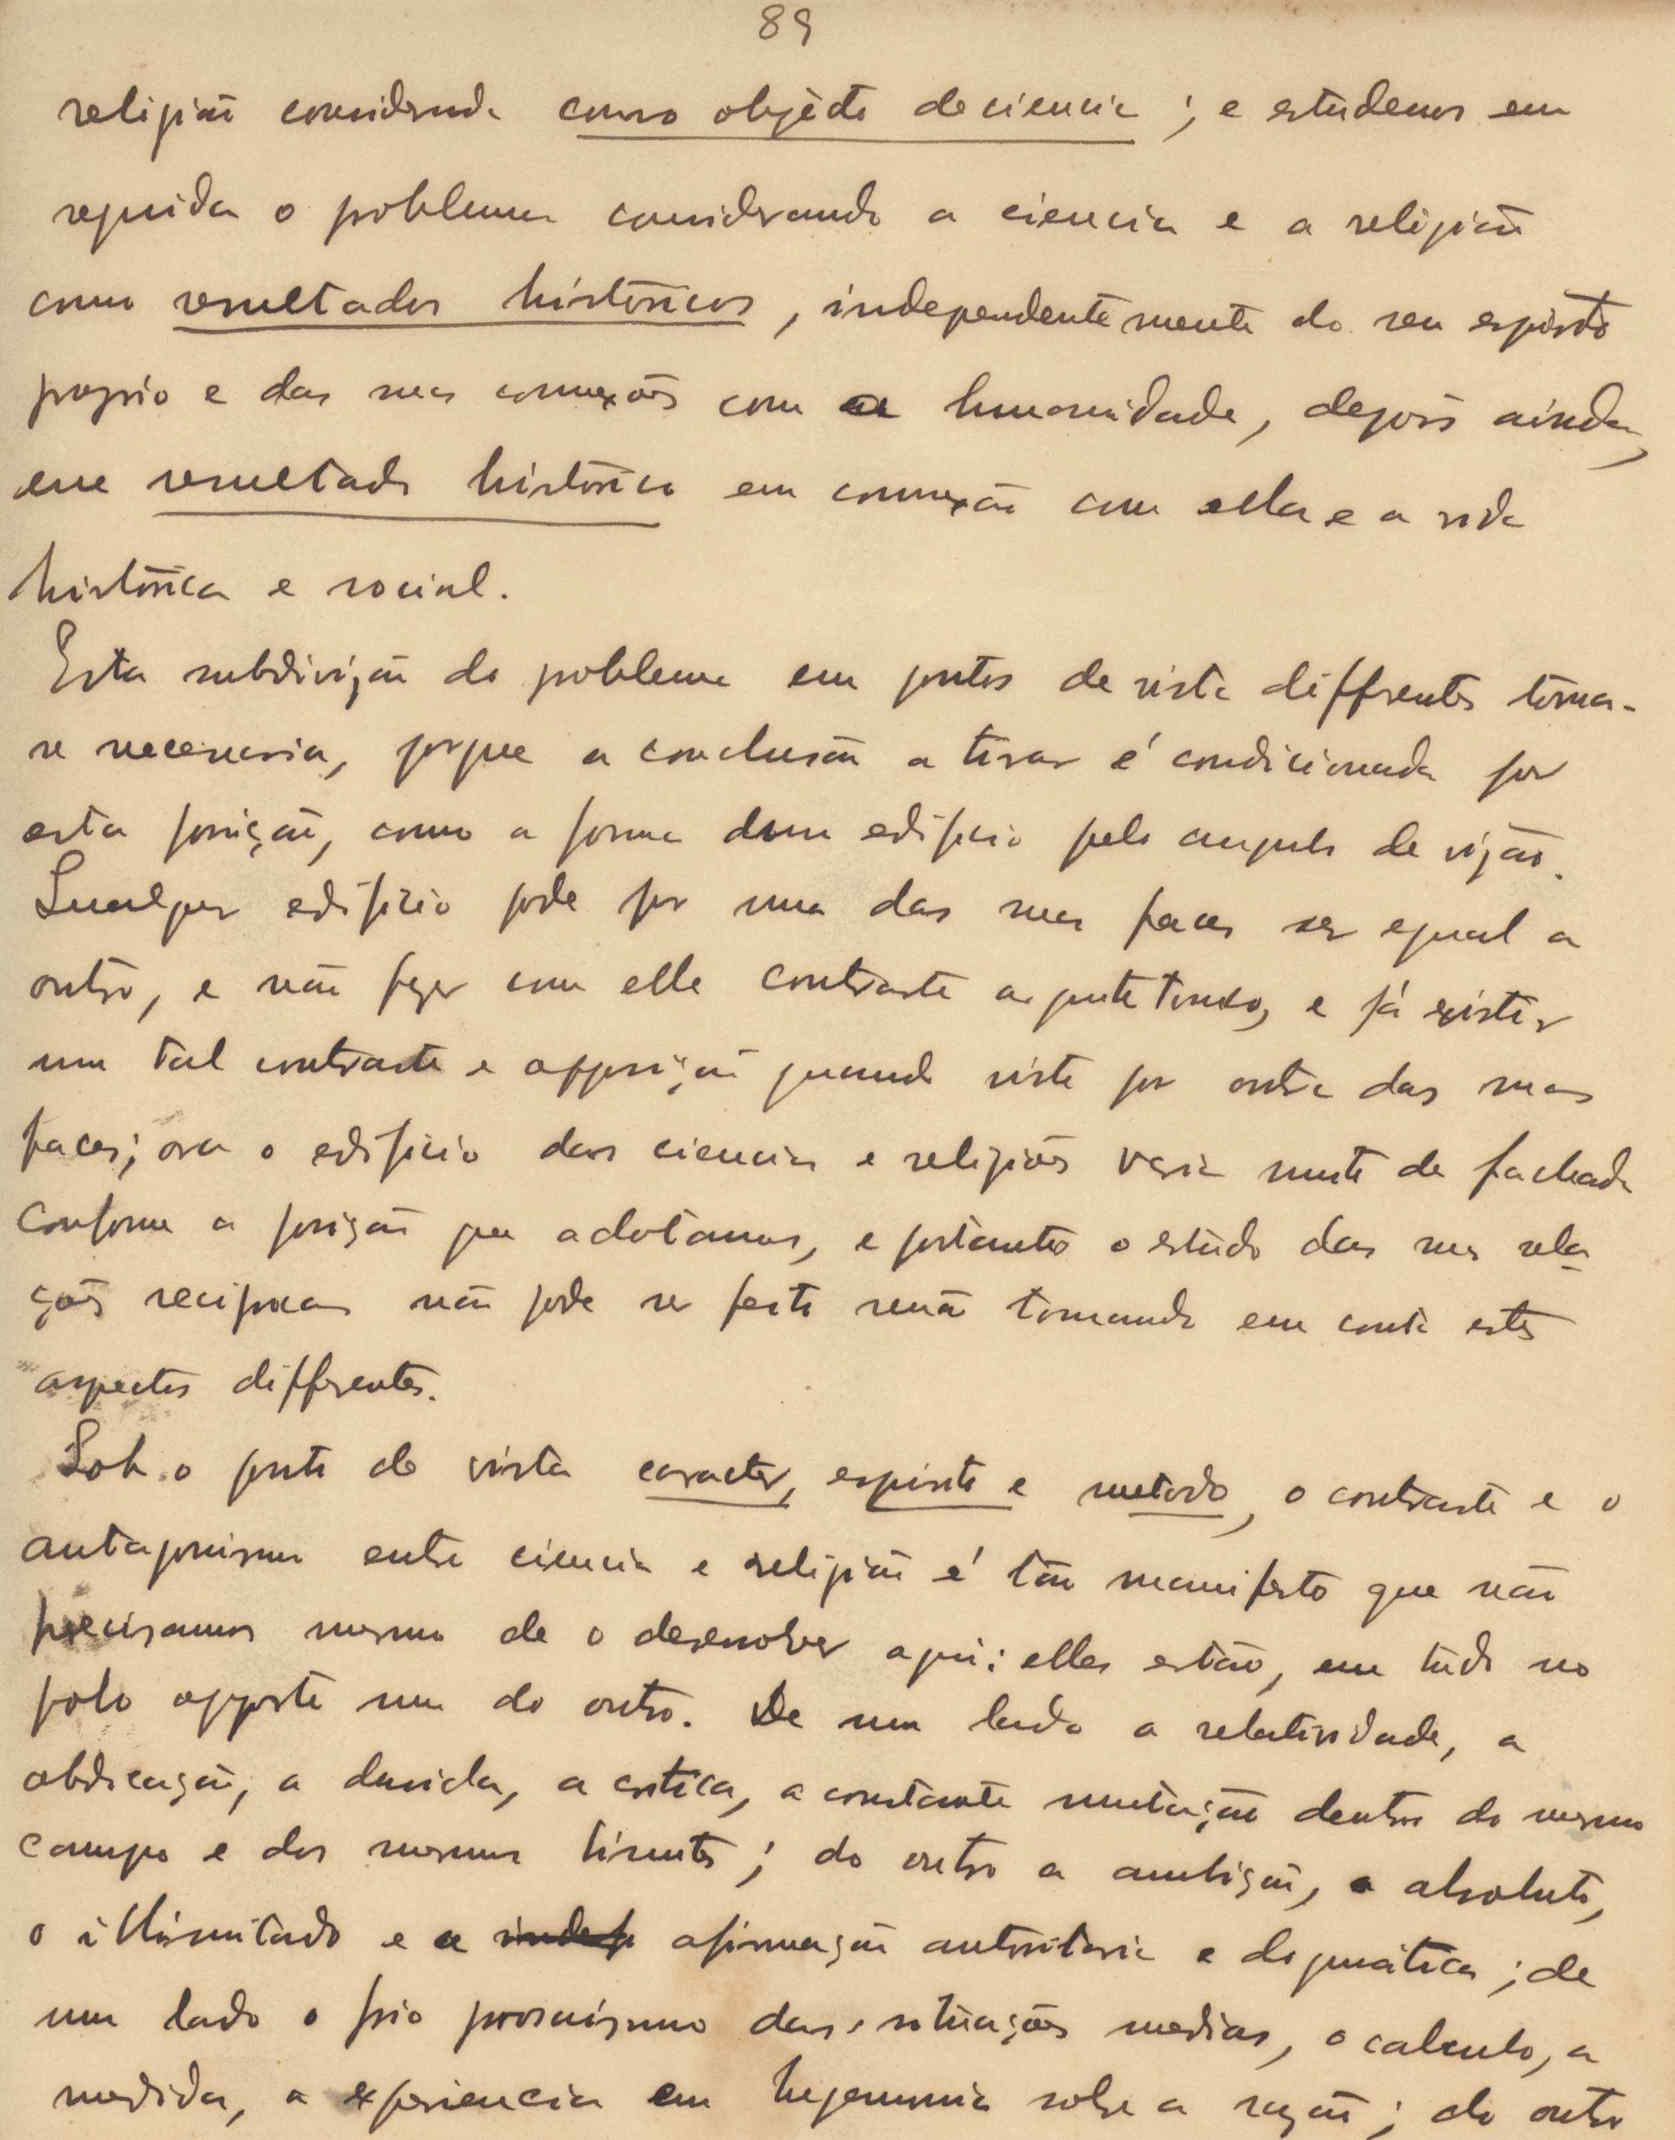 89
religião considerada como objéto de ciencia; e estudemos em
seguida o problema considerando a ciencia e a religião
como resultados históricos, independentemente do seu espirito
proprio e das suas connexões com a humanidade, depois ainda,
esse resultado histórico em connexão com ella e a vida
histórica e social.
Esta subdivizão do problema em pontos de vista differentes torna-
se necessaria, porque a conclusão a tirar é condicionada por
esta posição, como a forma dum edificio pelo angulo de vizão.
Qualquer edificio pode por uma das suas faces ser egual a
outro, e não fazer com elle contraste, e já existir
um tal contraste e opposição quando visto por outra das suas
faces; ora o edificio das ciencias e religiões varia muito de fachada
conforme a posição que adotamos, e portanto o estudo das suas rela-
ções reciprocas não pode ser feito senão tomando em conta estes
aspectos differentes.
Sob o ponto de vista caracter, espirito e metodo, o contraste e o
antagonismo entre ciencia e religião é tão manifesto que não
precisamos mesmo de o desenvolver aqui: elles estão, em tudo no
polo opposto um do outro. De um lado a relatividade, a
abdicação, a duvida, a critica, a constante mutação dentro do mesmo
campo e dos mesmos limites; do outro a ambição, o absoluto,
o illimitado e a afirmação autoritaria e dogmática; de
um lado o frio prosaismo das situações medias, o calculo, a
medida, a experiencia em hegemonia sobre a razão; do outro